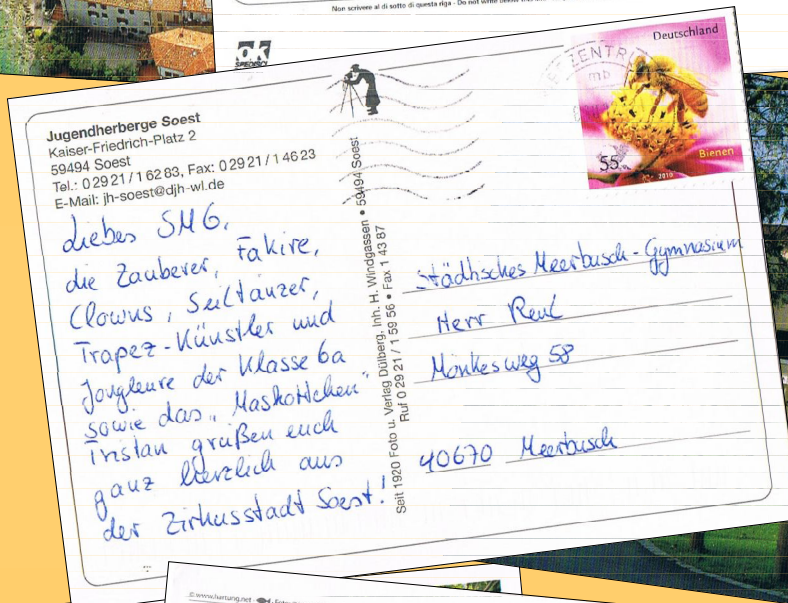 Non scrivere al di sotto di questa riga - Do not write below
ok
Jugendherberge Soest
Kaiser-Friedrich-Platz 2
59494 Soest
Tel.: 0 29 21 / 1 62 83, Fax: 0 29 21 / 1 46 23
E-Mail: jh-soest@djh-wl.de
Liebes SMG,
die Zauberer, Fakire,
Clowns, Seiltänzer,
Trapez-Künstler und
Jongleure der Klasse 6a
sowie das „Maskottchen"
Tristan grüßen euch
ganz herzlich aus
der Zirkusstadt Soest!
Seit 1920 Foto u. Verlag Dülberg, Inh. H. Windgassen • 59494 Soest
Ruf 0 29 21 / 1 59 56 • Fax 1 43 87
ZENTR
mb
Deutschland
55
Bienen
2010
Städtisches Meerbusch-Gymnasium
Herr Reul
Mönkesweg 58
40670 Meerbusch
© www.hartung.net